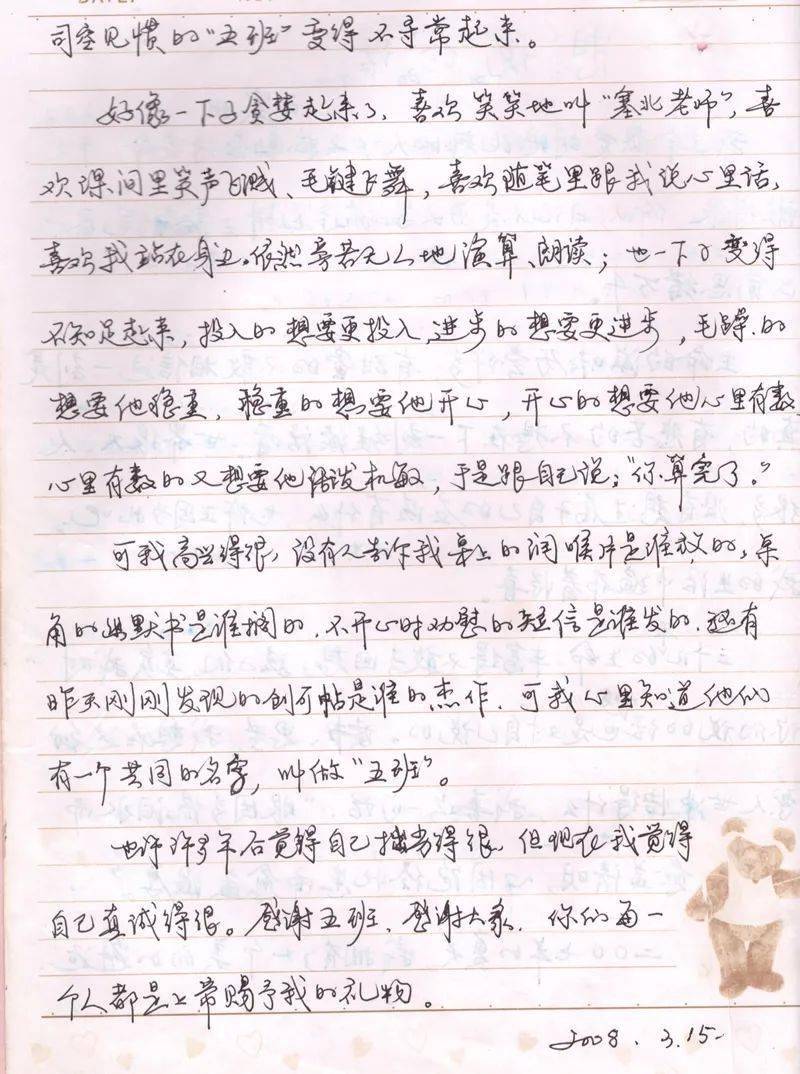 司空见惯的“五班”变得不寻常起来。
好像一下子贪婪起来了，喜欢笑笑地叫“塞北老师”，喜
欢课间里笑声飞溅、毛毽飞舞，喜欢随笔里跟我说心里话，
喜欢我站在身边依然旁若无人地演算、朗读；也一下子变得
不知足起来，投入的想要更投入，进步的想要更进步，毛躁的
想要他稳重，稳重的想要他开心，开心的想要他心里有数
心里有数的又想要他活泼机敏，于是跟自己说：“你算完了。”
可我高兴得很，没有人告诉我桌上的润喉片是谁放的，桌
角的幽默书是谁搁的，不开心时劝慰的短信是谁发的，还有
昨天刚刚发现的创可帖是谁的杰作，可我心里知道他们
有一个共同的名字，叫做“五班”。
也许许多年后觉得自己拙劣得很，但现在我觉得
自己真诚得很。感谢五班，感谢大家，你们每一
个人都是上帝赐予我的礼物。
2008.3.15